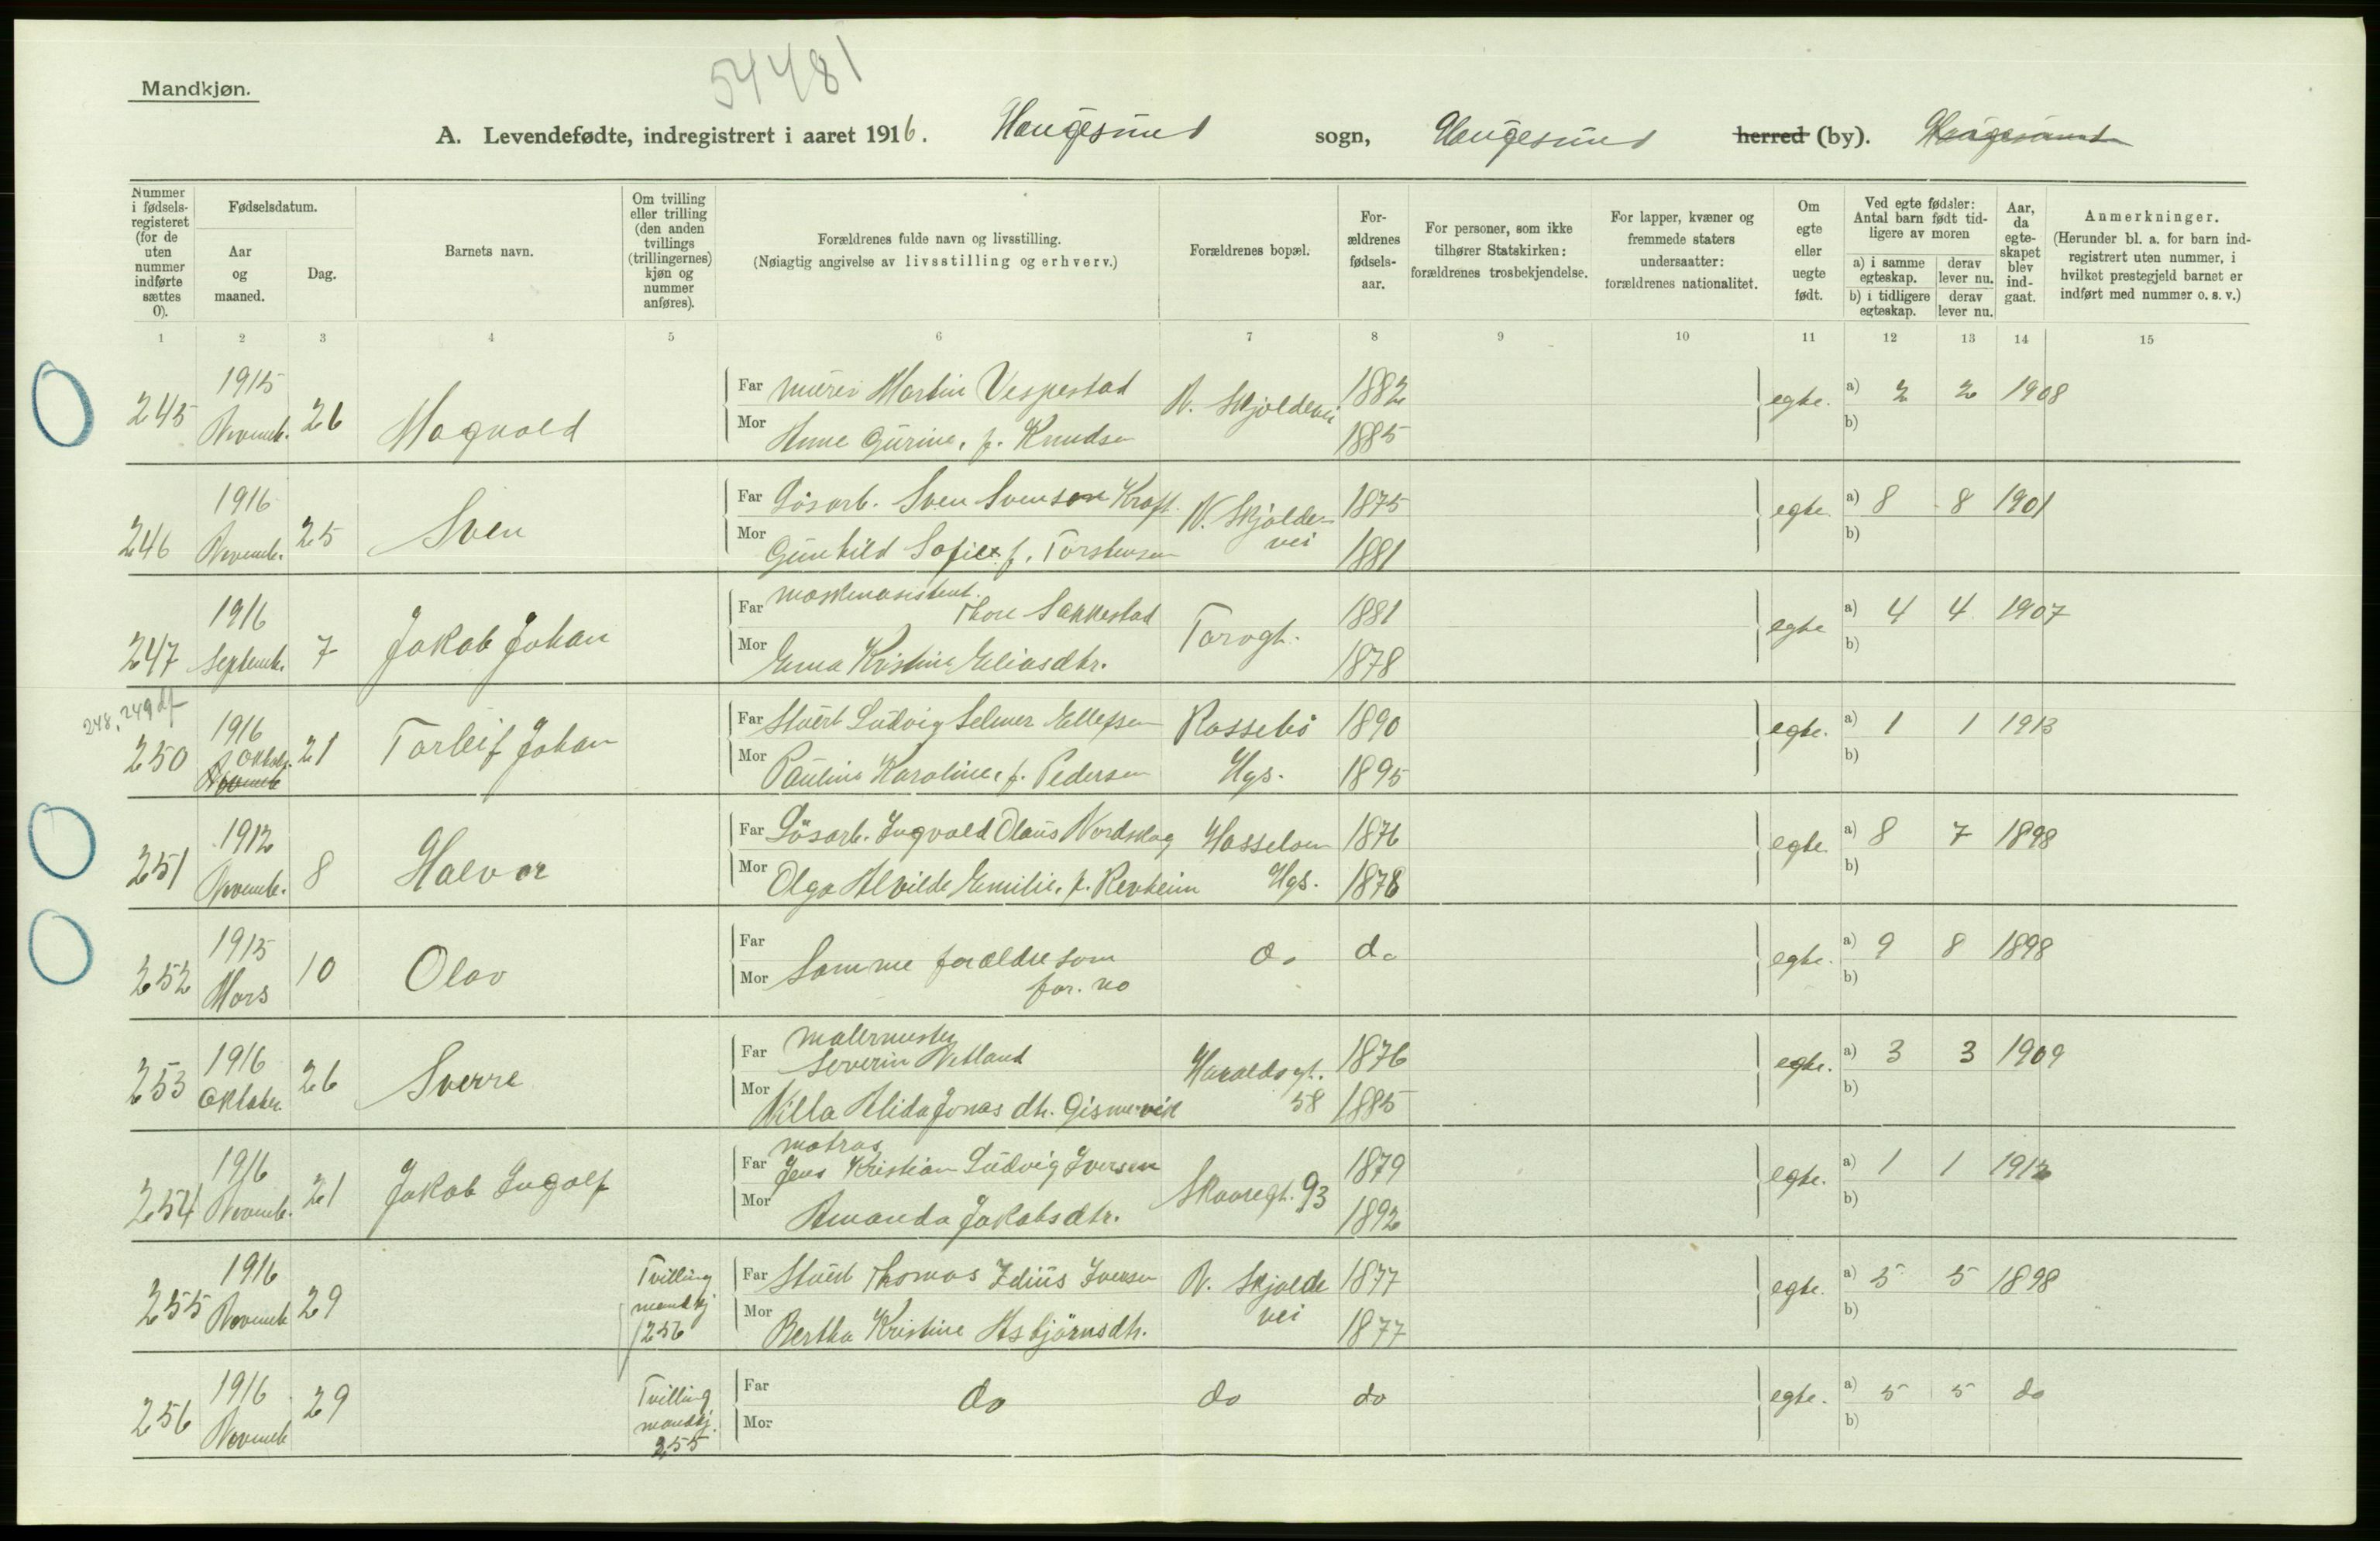 54481
Mandkjøn.
A. Levendefødte, indregistrert i aaret 1916. Haugesund sogn, Haugesund herred (by). Haugesund
Nummer i fødsels-registeret (for de uten nummer indførte sættes 0).
Fødselsdatum.
Aar og maaned.
Dag.
Barnets navn.
Om tvilling eller trilling (den anden tvillings (trillingernes) kjøn og nummer anføres).
Forældrenes fulde navn og livsstilling.
(Nøiagtig angivelse av livsstilling og erhverv.)
Forældrenes bopæl.
For-ældrenes fødsels-aar.
For personer, som ikke tilhører Statskirken: forældrenes trosbekjendelse.
For lapper, kvæner og fremmede staters undersaatter: forældrenes nationalitet.
Om egte eller uegte født.
Ved egte fødsler: Antal barn født tid-ligere av moren
a) i samme egteskap. derav lever nu.
b) i tidligere egteskap. derav lever nu.
Aar, da egte-skapet blev ind-gaat.
Anmerkninger.
(Herunder bl. a. for barn ind-registrert uten nummer, i hvilket prestegjeld barnet er indført med nummer o. s. v.)
1 2 3 4 5 6 7 8 9 10 11 12 13 14 15
245 1915 Novemb. 26 Magnald
Far murer Martin Vespestad N. Skjoldevei 1882 egte. a) 2 2 1908
Mor Anne Gurine, f. Knudsen 1885 b)
246 1916 Novemb. 25 Sven
Far Løsarb. Sven Svensen Kraft. N. Skjolde-vei 1875 egte. a) 8 8 1901
Mor Gunhild Sofie f. Torstensen 1881 b)
247 1916 Septemb. 7 Jakob Johan
Far maskinasistent. Thore Sakkestad Torvgt. 1881 egte a) 4 4 1907
Mor Erna Kristine Eliasdtr. 1878 b)
248, 249 df
250 1916 Oktob. Novemb 21 Torleif Johan
Far Stuert Ludvig Selmer Ellefsen Rossebø Hgs. 1890 egte. a) 1 1 1913
Mor Pauline Karoline, f. Pedersen 1895 b)
251 1912 Novemb. 8 Halvor
Far Løsarb. Ingvald Olaus Nordskog Hasseloen Hgs. 1876 egte. a) 8 7 1898
Mor Olga Alvilde Emilie, f. Revheim 1878 b)
252 1915 Mars 10 Olav
Far Mor Samme forældre som for. no do do egte. a) 9 8 1898
b)
253 1916 Oktober. 26 Sverre
Far malermester Severin Vetland Haraldsgt. 58 1876 egte. a) 3 3 1909
Mor Villa Alida Jonas dtr. Gismervik 1885 b)
254 1916 Novemb. 21 Jakob Ingolf
Far matros Jens Kristian Ludvig Iversen Skaaregt. 93 1879 egte. a) 1 1 1912
Mor Amanda Jakobsdtr. 1892 b)
255 1916 Novemb 29 Tvilling mandkj 256
Far Stuert Thomas Iversen N. Skjolde vei 1877 egte. a) 5 5 1898
Mor Bertha Kristine Asbjørnsdtr. 1877 b)
256 1916 Novemb 29 Tvilling mandkj. 255
Far Mor do do do egte. a) 5 5 do
b)